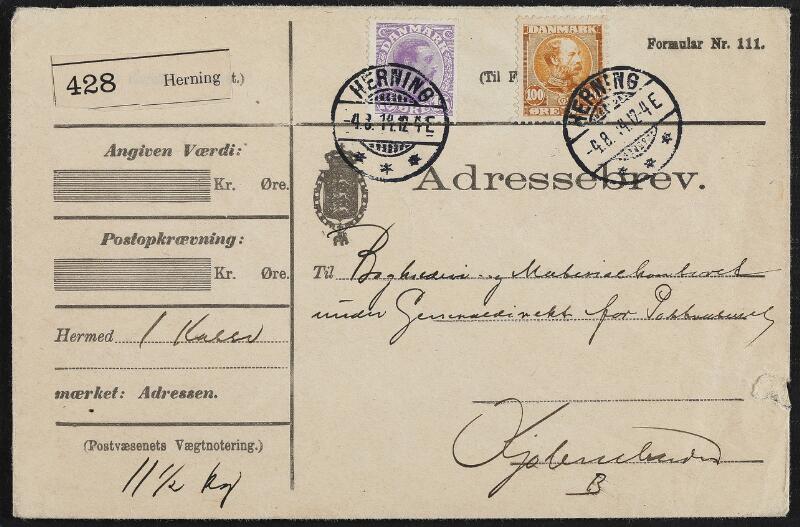 428 Herning
t.)
(Til F
Formular Nr. 111.
DANMARK
ØRE
DANMARK
100
ØRE
HERNING
-4.8.14.12-4 E
HERNING
-4.8.14.12-4 E
Adressebrev.
Angiven Værdi:
Kr. Øre.
Postopkrævning:
Kr. Øre.
Hermed 1 Kasse
mærket: Adressen.
(Postvæsenets Vægtnotering.)
11 1/2 kg
Til Bogtrykkeri- og Materialkontoret
under Generaldirekt for Postvæsenet
Kjøbenhavn
B